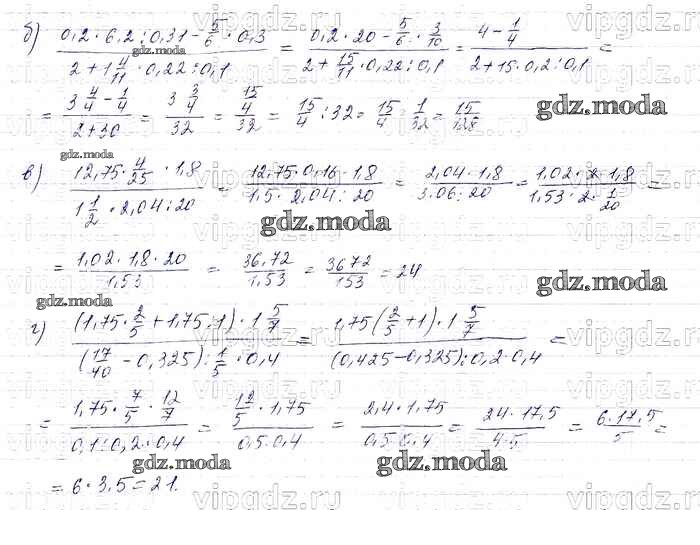 б) (0,2 · 6,2 : 0,31 − 5/6 · 0,3) / (2 + 1 4/11 · 0,22 : 0,1) = (0,2 · 20 − 5/6 · 3/10) / (2 + 15/11 · 0,22 : 0,1) = (4 − 1/4) / (2 + 15 · 0,2 : 0,1) =
= (3 4/4 − 1/4) / (2 + 30) = (3 3/4) / 32 = (15/4) / 32 = 15/4 : 32 = 15/4 · 1/32 = 15/128
в) (12,75 · 4/25 · 1,8) / (1 1/2 · 2,04 : 20) = (12,75 · 0,16 · 1,8) / (1,5 · 2,04 : 20) = (2,04 · 1,8) / (3,06 : 20) = (1,02 · 2 · 1,8) / (1,53 · 2 · 1/20) =
= (1,02 · 1,8 · 20) / 1,53 = 36,72 / 1,53 = 3672 / 153 = 24
г) ((1,75 · 2/5 + 1,75 : 1) · 1 5/7) / ((17/40 − 0,325) : 1/5 · 0,4) = (1,75 (2/5 + 1) · 1 5/7) / ((0,425 − 0,325) : 0,2 · 0,4) =
= (1,75 · 7/5 · 12/7) / (0,1 : 0,2 · 0,4) = (12/5 · 1,75) / (0,5 · 0,4) = (2,4 · 1,75) / (0,5 · 0,4) = (24 · 17,5) / (4 · 5) = (6 · 17,5) / 5 =
= 6 · 3,5 = 21.
gdz.moda
vipgdz.ru